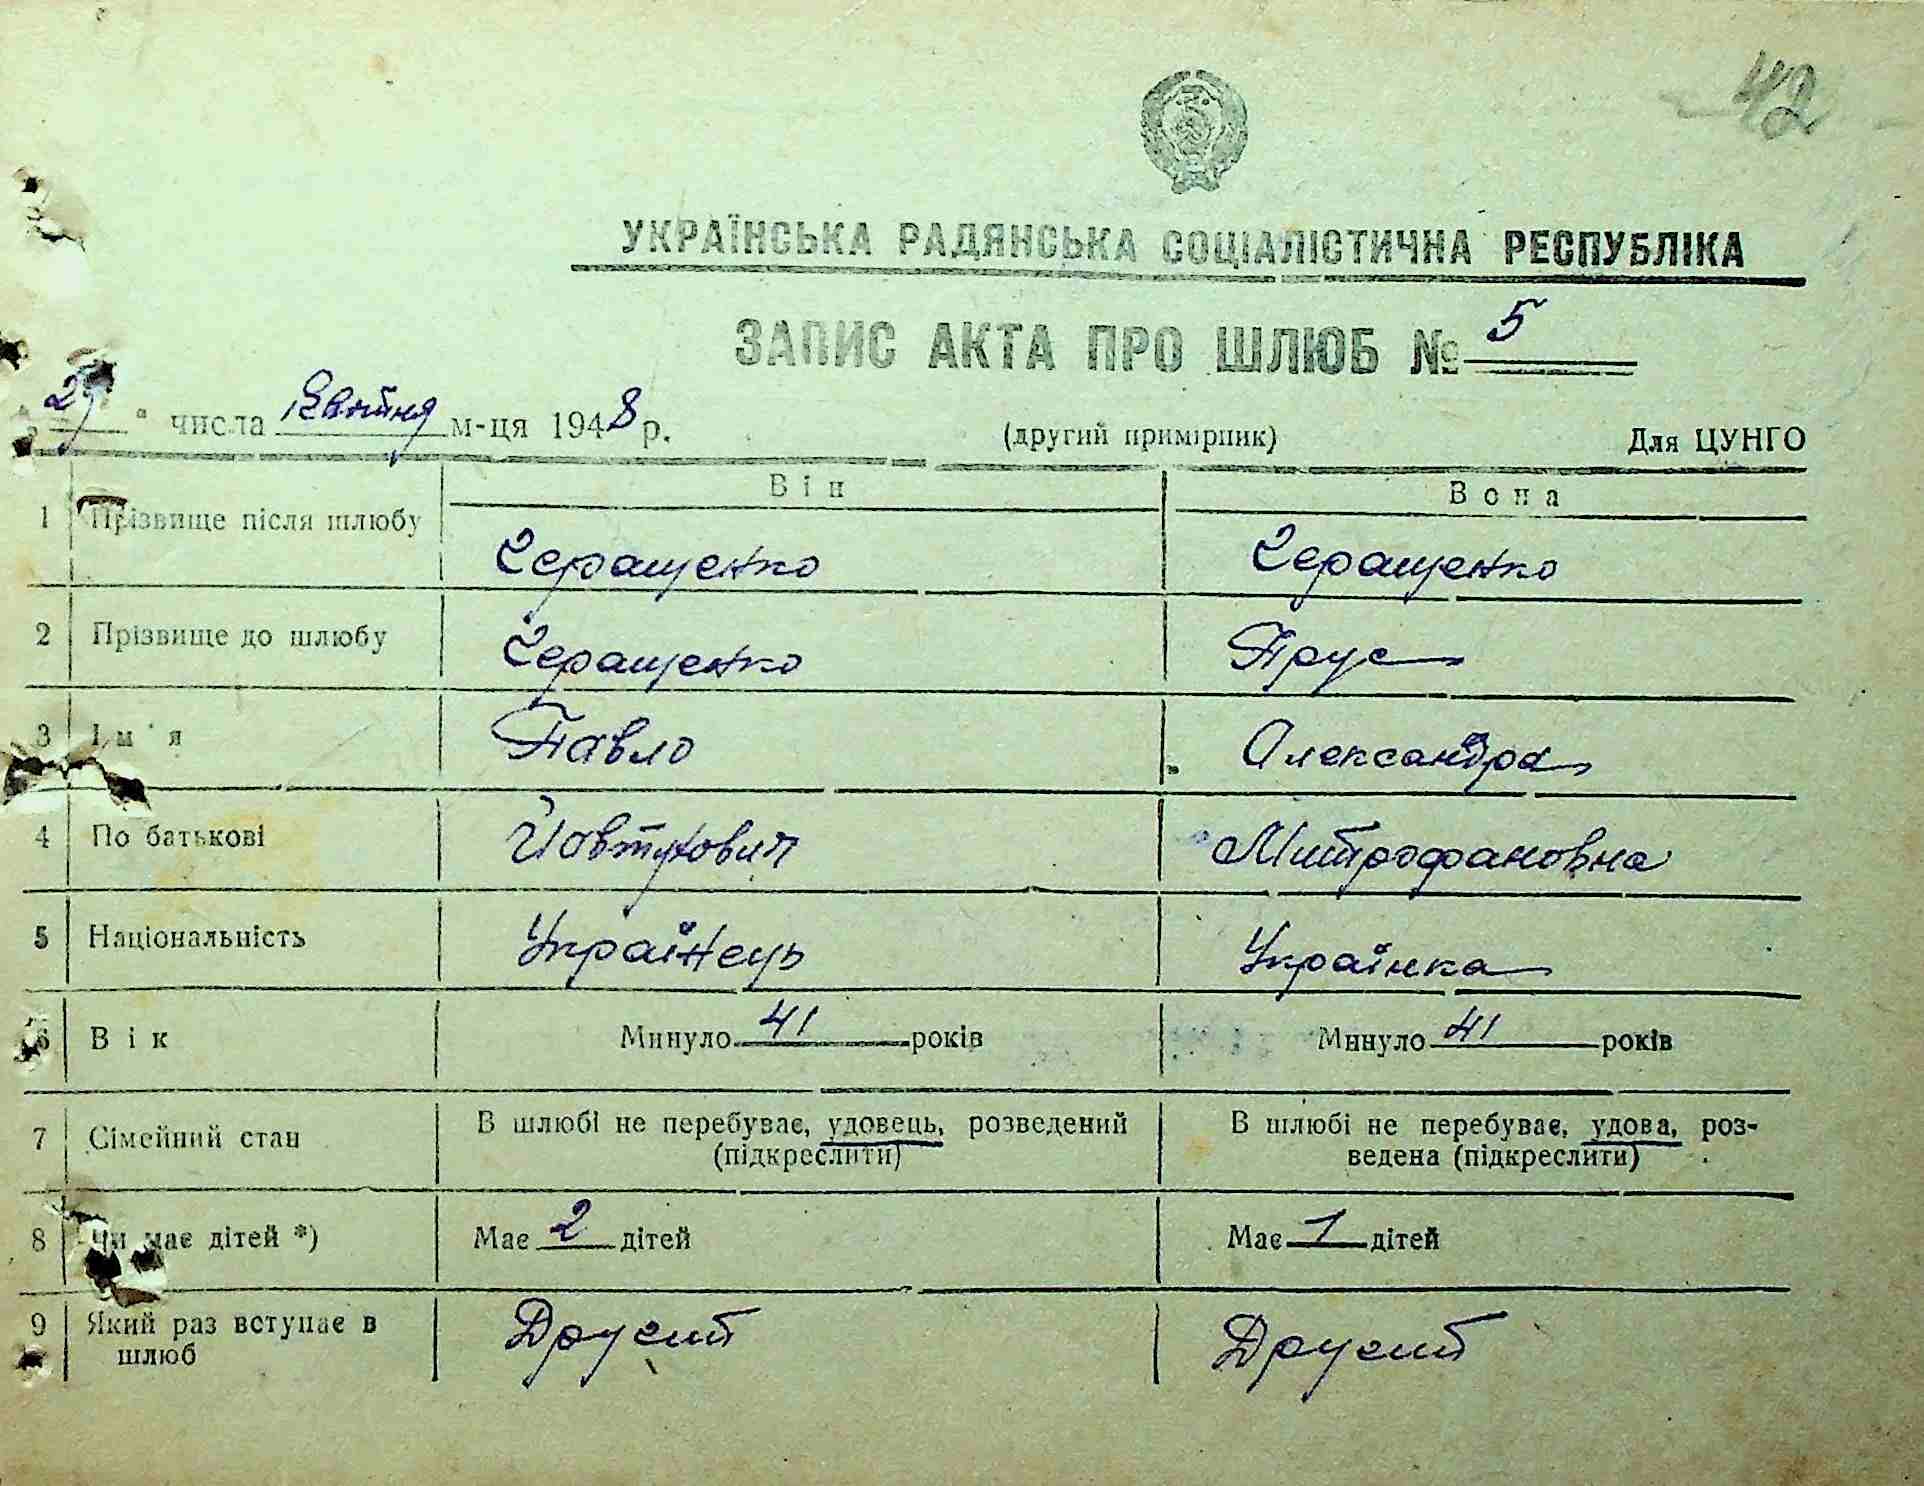 42
УКРАЇНСЬКА РАДЯНСЬКА СОЦІАЛІСТИЧНА РЕСПУБЛІКА
ЗАПИС АКТА ПРО ШЛЮБ № 5
„29“ числа Квітня м-ця 1948 р. (другий примірник) Для ЦУНГО
Він Вона
1 Прізвище після шлюбу Геращенко Геращенко
2 Прізвище до шлюбу Геращенко Прус
3 Ім'я Павло Олександра
4 По батькові Йовтухович Митрофановна
5 Національність Українець Українка
6 Вік Минуло 41 років Минуло 41 років
7 Сімейний стан В шлюбі не перебуває, удовець, розведений В шлюбі не перебуває, удова, роз-
(підкреслити) ведена (підкреслити)
8 Чи має дітей *) Має 2 дітей Має 1 дітей
9 Який раз вступає в Другий Другий
шлюб